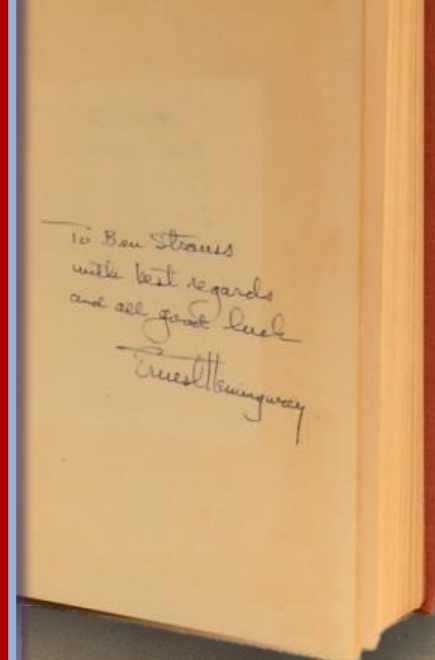 To Ben Strauss
with best regards
and all good luck
Ernest Hemingway